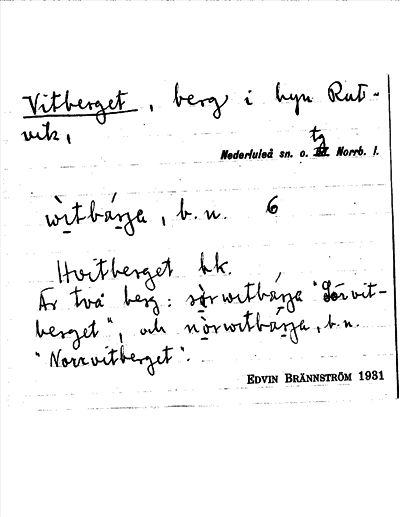 Vitberget, berg i byn Rut-
vik,
tg
Nederluleå sn. o. Norrb. l.
wìtbárja, b. n. 6
Hvitberget kk.
Är två berg: sørwitbárja "Sörvit-
berget", och nòrwitbárja, b. n.
"Norrvitberget".
EDVIN BRÄNNSTRÖM 1931